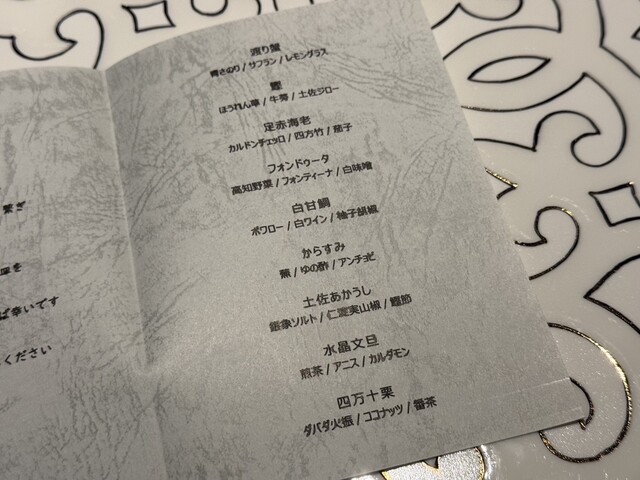 繋ぎ
皿を
ば幸いです
ください
渡り蟹
青さのり / サフラン / レモングラス
鰹
ほうれん草 / 牛蒡 / 土佐ジロー
足赤海老
カルドンチェッロ / 四方竹 / 茄子
フォンドゥータ
高知野菜 / フォンティーナ / 白味噌
白甘鯛
ポワロー / 白ワイン / 柚子胡椒
からすみ
蕪 / ゆの酢 / アンチョビ
土佐あかうし
龈象ソルト / 仁淀実山椒 / 鰹節
水晶文旦
煎茶 / アニス / カルダモン
四万十栗
ダバダ火振 / ココナッツ / 番茶